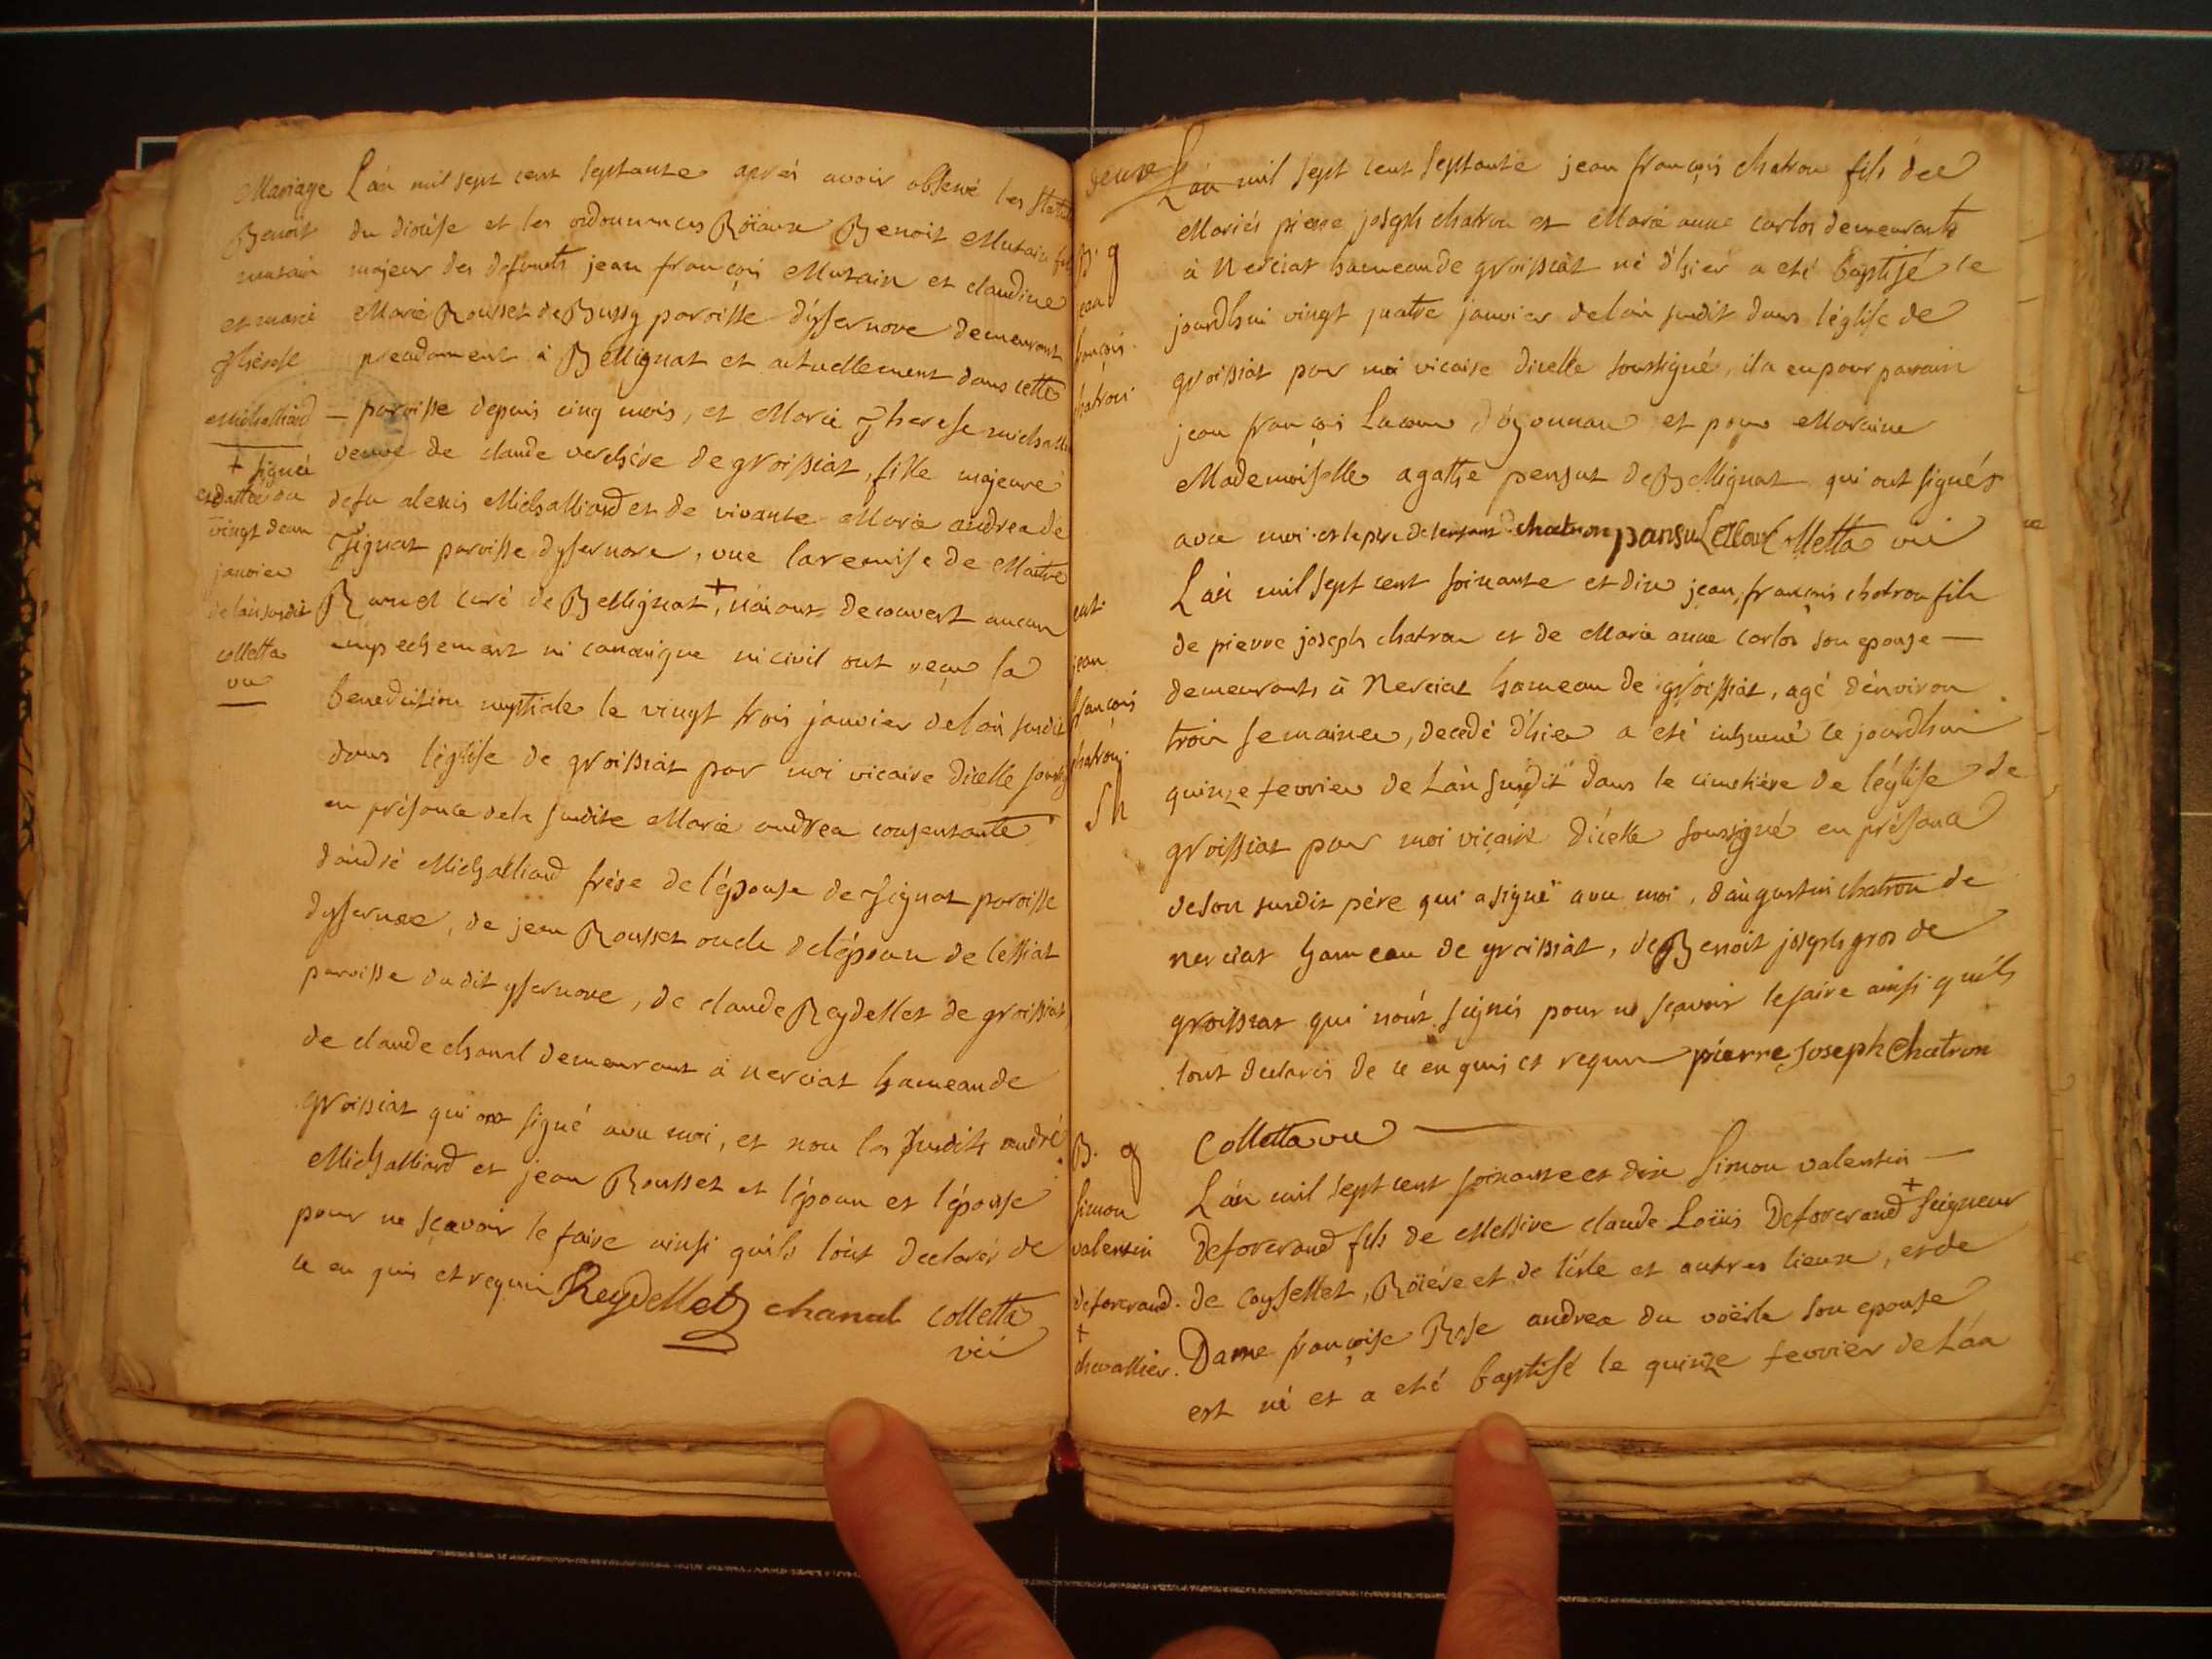 Mariage
Benoit
mutain
et marie
Therese
Michalliard
+ signée
et dattée du
vingt deux
janvier
de l'an susdit
colletta
vic
L'an mil sept cent septante aprés avoir observé les statuts
du diocése et les ordonnances Roïaux Benoit Mutain fils
majeur des defunts jean françois Mutain et claudine
Marie Rousset de Bussy paroisse d'ysernore demeurant
precedament à Bellignat et actuellement dans cette
– paroisse depuis cinq mois, et Marie Therese michalliard
veuve de claude verchére de groissiat, fille majeure
de fu alexis Michalliard et de vivante Marie andrea de
Tignat paroisse d'ysernore, vue la remise de Maitre
curé de Bellignat +, n'aiant decouvert aucun
empechement ni canonique ni civil ont reçu la
benediction nuptiale le vingt trois janvier de l'an susdit
dans l'église de groissiat par moi vicaire d'icelle soussigné
en présence de la susdite Marie andrea consentante
d'andré Michalliard frére de l'épouse de Tignat paroisse
d'ysernore, de jean Rousset oncle de l'époux de cessiat
paroisse dudit ysernore, de claude Reydellet de groissiat,
de claude chanal demeurant à nerciat hameau de
groissiat qui ont signé avec moi, et non les susdits andré
Michalliard et jean Rousset et l'époux et l'épouse
pour ne sçavoir le faire ainsi qu'ils l'ont declarés de
ce enquis et requis Reydellet chanal colletta
vic
deuxe
B. g
jean
françois
chatron
L'an mil sept cent septante jean françois chatron fils des
Mariés pierre joseph chatron et Marie anne carlos demeurants
à Nerciat hameau de groissiat né d'hier a eté baptisé ce
jourdhui vingt quatre janvier de l'an susdit dans l'église de
groissiat par moi vicaire d'icelle soussigné, il a eu pour parain
jean françois Lacour d'oyonnax et pour Maraine
Mademoiselle agathe pensut de Bellignat qui ont signés
avec moi et le pére de l'enfant chatron pansu Lacour Colletta vic
ent.
jean
françois
chatron
Sh
L'an mil sept cent soixante et dix jean françois chatron fils
de pierre joseph chatron et de Marie anne carlos son epouse –
demeurants à Nerciat hameau de groissiat, agé d'environ
trois semaines, decedé d'hier a eté inhumé ce jourdhui
quinze fevrier de L'an susdit dans le cimetiére de l'église de
groissiat par moi vicaire d'icelle soussigné en présence
de son susdit pére qui a signé avec moi, d'augustin chatron de
nerciat hameau de groissiat, de Benoit joseph gros de
groissiat qui n'ont signés pour ne sçavoir le faire ainsi qu'ils
l'ont declarés de ce enquis et requis pierre Joseph Chatron
Colletta vic
B. g
simon
valentin
deforcrand.
+
chevallier.
L'an mil sept cent soixante et dix Simon valentin –
Deforcrand fils de Messire claude Loüis Deforcrand + seigneur
de coyssellet, Roïére et de l'isle et autres lieux, et de
Dame françoise Rose andrea du voësle son epouse
est né et a eté baptisé le quinze fevrier de L'an